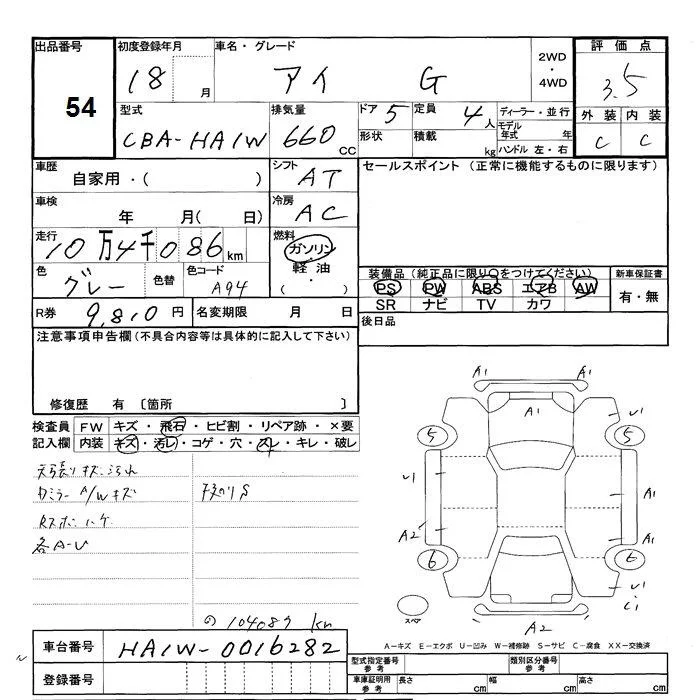 出品番号
54
初度登録年月
18 月
車名・グレード
アイ G
2WD
・
4WD
評価点
3.5
外装 内装
C C
型式
CBA-HA1W
排気量
660 CC
ドア 5
定員 4人
形状
積載 kg
ディーラー・並行
モデル年式 年
ハンドル 左・右
車歴
自家用・( )
シフト
AT
セールスポイント (正常に機能するものに限ります)
車検
年 月( 日)
冷房
AC
走行
10万4千086km
燃料
ガソリン
軽油・
( )
色
グレー
色替
色コード
A94
装備品(純正品に限り○をつけてください)
PS PW ABS エアB AW
SR ナビ TV カワ
新車保証書
有・無
R券 9,810円
名変期限 月 日
後日品
注意事項申告欄(不具合内容等は具体的に記入して下さい)
修復歴 有 〔箇所 〕
検査員記入欄
FW キズ・飛石・ヒビ割・リペア跡・×要
内装 キズ・汚れ・コゲ・穴・スレ・キレ・破レ
天張りキズ汚れ
カミラー A/Wキズ
各A-U
の 104087 km
A1 A1
A1
5 5
A1
A1
A2
A1
6 6
スペア
A2
A-キズ E-エクボ U-凹み W-補修跡 S-サビ C-腐食 XX-交換済
車台番号
HA1W-0016282
登録番号
型式指定番号
参考
類別区分番号
参考
車庫証明用
参考
長さ cm
幅 cm
高さ cm